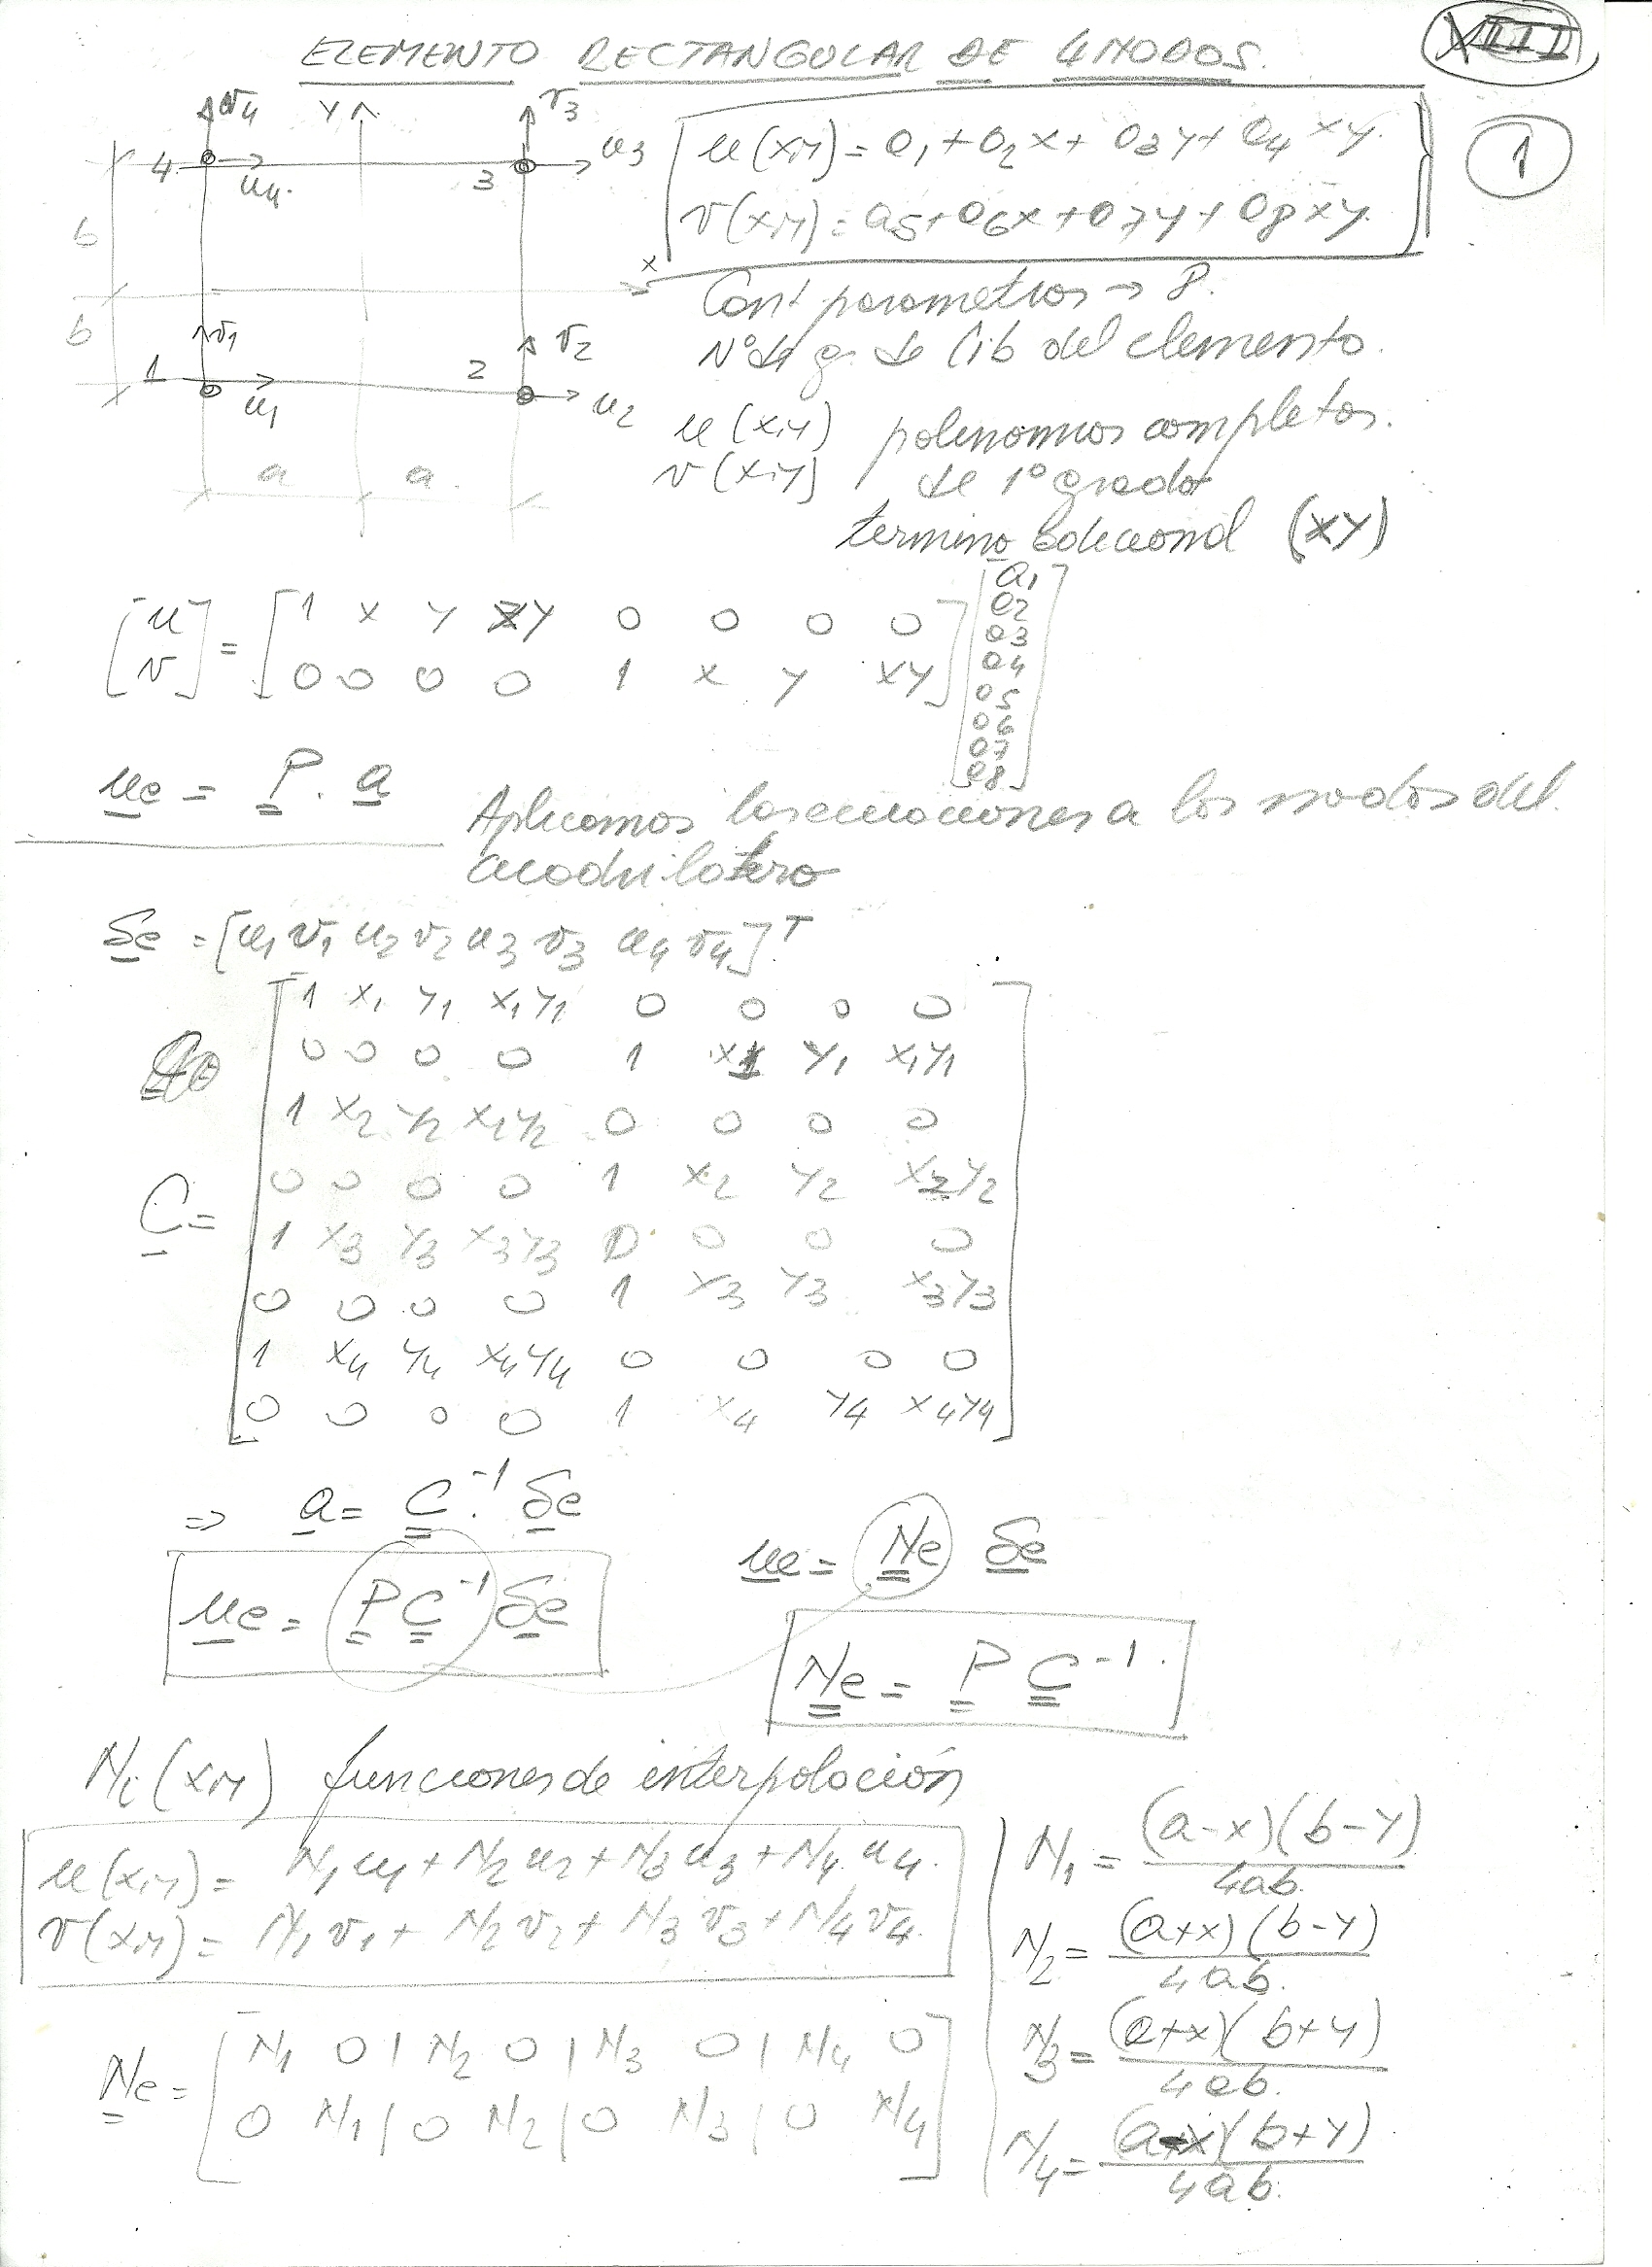 ELEMENTO RECTANGULAR DE 4 NODOS.
XIII
1
v4 Y v3
4 u4. 3 u3
b
x
b
v1 v2
1 u1 2 u2
a a.
u(x,y) = a1 + a2 x + a3 y + a4 xy.
v(x,y) = a5 + a6 x + a7 y + a8 xy.
Cant parametros → 8.
Nº de g. de lib del elemento.
u(x,y) polinomios completos.
v(x,y) de 1º grado
termino adicional (xy)
[u] = [1 x y xy 0 0 0 0] [a1
[v] [0 0 0 0 1 x y xy] a2
a3
a4
a5
a6
a7
a8]
ue = P . a
Aplicamos las ecuaciones a los nodos del
cuadrilatero
δe = [u1 v1 u2 v2 u3 v3 u4 v4]T
C = [1 x1 y1 x1y1 0 0 0 0
0 0 0 0 1 x1 y1 x1y1
1 x2 y2 x2y2 0 0 0 0
0 0 0 0 1 x2 y2 x2y2
1 x3 y3 x3y3 0 0 0 0
0 0 0 0 1 x3 y3 x3y3
1 x4 y4 x4y4 0 0 0 0
0 0 0 0 1 x4 y4 x4y4]
⇒ a = C^-1 . δe
ue = P C^-1 δe
ue = Ne δe
Ne = P C^-1.
Ni(x,y) funciones de interpolación
u(x,y) = N1 u1 + N2 u2 + N3 u3 + N4 u4.
v(x,y) = N1 v1 + N2 v2 + N3 v3 + N4 v4.
Ne = [N1 0 | N2 0 | N3 0 | N4 0
0 N1 | 0 N2 | 0 N3 | 0 N4]
N1 = (a-x)(b-y)
4ab.
N2 = (a+x)(b-y)
4ab.
N3 = (a+x)(b+y)
4ab.
N4 = (a-x)(b+y)
4ab.